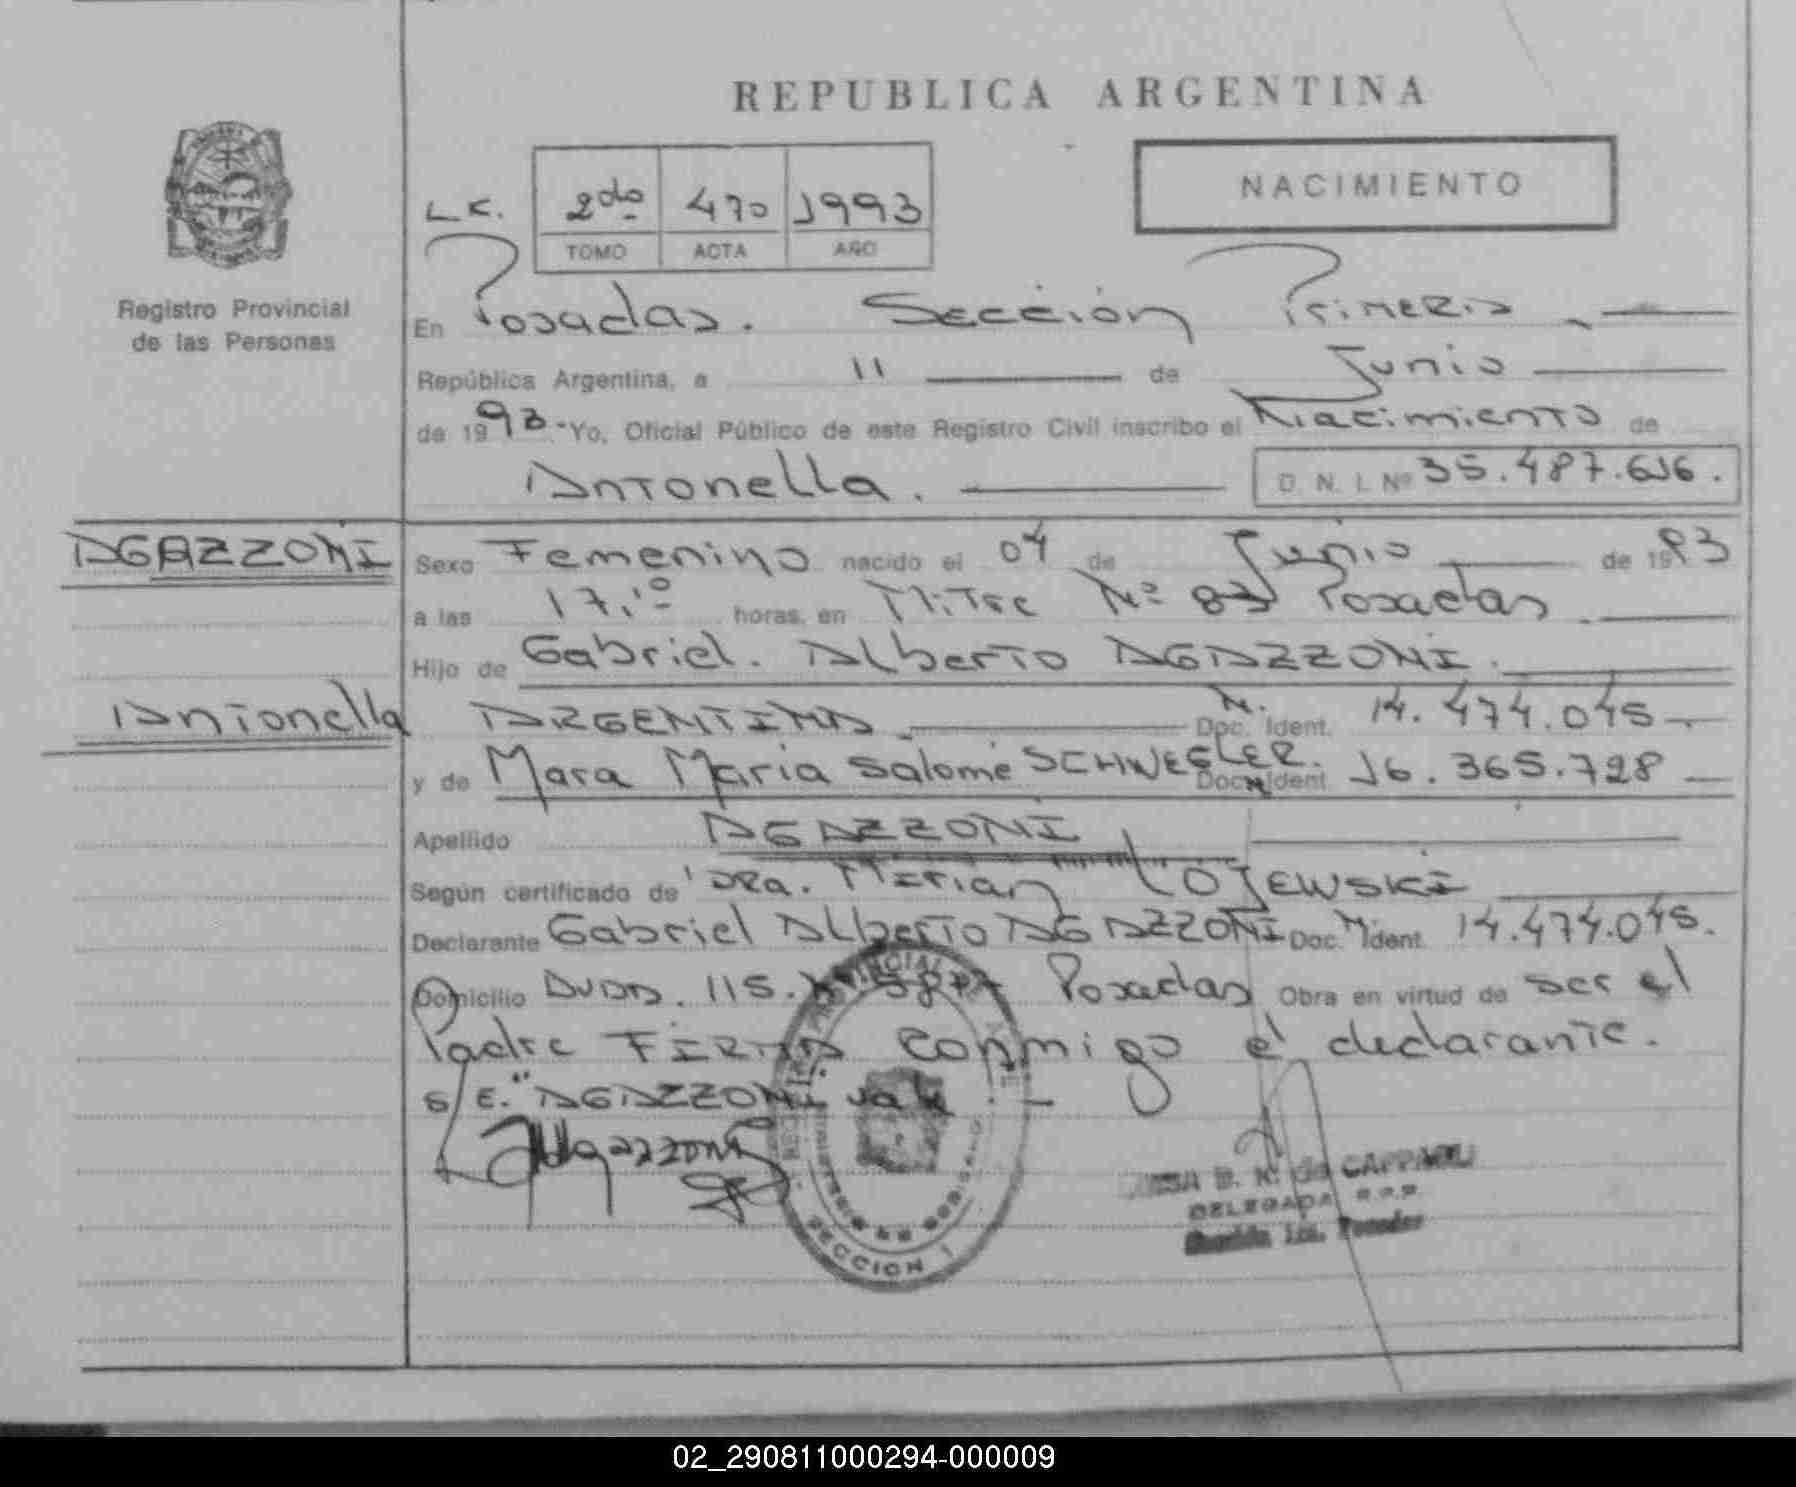 REPUBLICA ARGENTINA
NACIMIENTO
L C. 2do 470 1993
TOMO ACTA AÑO
Registro Provincial
de las Personas
En Posadas. Sección Primera
República Argentina, a 11 de Junio
de 1993- Yo, Oficial Público de este Registro Civil inscribo el Nacimiento de
Antonella. D. N. I. Nº 35.487.616.
AGAZZONI
Sexo Femenino nacido el 04 de Junio de 1993
a las 17,1º horas, en Mitre Nº 83 Posadas
Hijo de Gabriel. Alberto AGAZZONI.
Antonella
ARGENTINA Doc. N. Ident. 14.474.045
y de Mara Maria Salomé SCHWEGLER. Doc. N Ident. 16.365.728
Apellido AGAZZONI
Según certificado de Dra. Mirian LOJEWSKI
Declarante Gabriel Alberto AGAZZONI Doc. N. Ident. 14.474.045.
Domicilio Avda. 115. Posadas Obra en virtud de ser el
Padre FIRMA conmigo el declarante.
S/E. "AGAZZONI vale
Agazzoni
B. N. de
DELEGADA R.P.P.
Posadas
SECCION 1
02_290811000294-000009